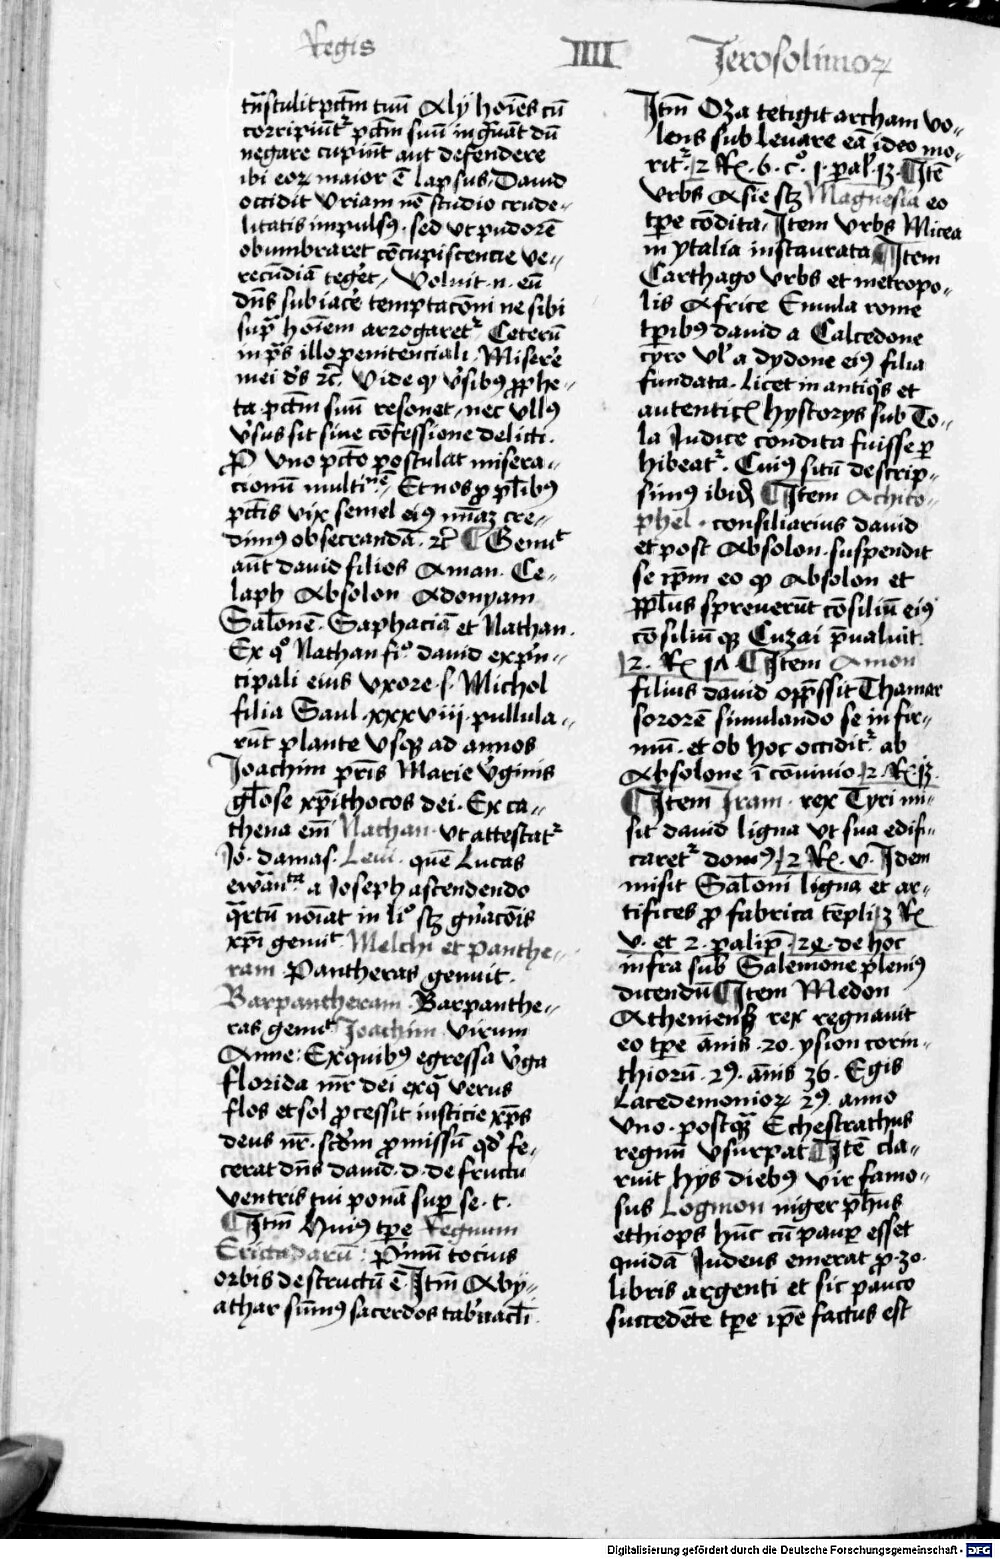 Regis IIII Jerosolimoꝝ
tn̄stulit pctm̄ tuū Aly hoīes cū
corripiunt᷑ pctm̄ suū ingͣuāt dū
negare cupiūt aut defendere
ibi eoꝝ maior ē lapsus. Dauid
occidit Vriam nō studio crude-
litatis impulsꝰ. sed vt pudorē
obumbraret cōcupiscencie ve-
recūdiā tegeret, Voluit .n. eū
dn̄s subiacē temptacōni ne sibi
supͣ hoīem arrogaret᷑ Ceterū
in pͣs illo penitenciali. Miserē
mei ds̄ ⁊c̄. Vide qͦ vs̄ibꝰ ꝓphe-
ta pctm̄ suū resonet, nec vllꝰ
vs̄us sit sine cōfessione delicti.
P vno pctō postulat misera-
cionū multi Et nos ꝓ pl̄ibꝰ
pctīs vix semel eiꝰ mīaꝫ cre-
dimꝰ obsecrandā. ⁊c̄ ¶ Genuͭ
aūt dauid filios Aman. Ce-
laph Absolon Adonyam
Salōnē. Saphaciā et Nathan.
Ex qͦ Nathan fiͦ dauid ex pͥn-
cipali eius vxore .s. Michol
filia Saul .xxxviij. pullula-
rūt plante vsqꝫ ad annos
Joachim pr̄is Marie vg̓inis
gl̄ose xp̄ithocos dei. Ex ca-
thena em̄ Nathan vt attestat᷑
Jo. damas. Leui. quē Lucas
ewan a Joseph ascendendo
qͣrtū noīat in liͦ sꝫ gn̄acōis
xp̄i genuͭ Melchi et Panthe-
ram Pantheras genuit.
Barpantheram. Barpanthe-
ras genuͭ Joachim virum
Anne. Ex quibꝰ egressa vg̓a
florida mr̄ dei ex qͣ verus
flos et sol ꝓcessit iusticie xp̄s
deus nr̄. scdm̄ ꝓmissū qd̄ fe-
cerat dn̄s dauid. d. de fructu
ventris tui ponā suꝑ se. t.
¶ Itm̄ Huiꝰ tꝑe Regnum
pͥmū tocius
orbis destructū ē. Itm̄ Aby-
athar sūmꝰ sacerdos tab̓nacl̄i
Itm̄ Oza tetigit archam vo-
lens sub leuare eā ideo mo-
rit᷑. 2 Rͤ. 6. cͦ. 1. pal. 13. ¶ Itē
Vrbs Asie sꝫ Magnesia eo
tꝑe cōdita. Item vrbs Micea
in ytalia instaurata ¶ Item
Carthago vrbs et metropo-
lis Africe Emula rome
tꝑibꝰ dauid a Calcedone
cyro vl̓ a dydone eiꝰ filia
fundata. licet in antiqͥs et
autenticꝭ hystorys sub To-
la Judice condita fuisse ꝑ
hibeat᷑. Cuiꝰ sitū descrip-
simꝰ ibid ¶ Item Achito-
phel. consiliarius dauid
et post Absolon. suspendit
se ip̄m eo qͦ Absolon et
ppl̄us spreuerūt cōsiliū eiꝰ
cōsiliū qꝫ Cuzai pͥualuit.
2. Rͤ 17. ¶ Item Amon
filius dauid opp̄ssit Thamar
sororē simulando se infir-
mū. et ob hoc occidit᷑ ab
Absolone ī cōuiuio. 2. Rͤ. 13.
¶ Item Iram. rex Tyri mi-
sit dauid ligna vt sua edifi-
caret᷑ domꝰ, 2 Rͤ. v. Idem
misit Salōni ligna et ar-
tifices ꝓ fabrica tēpli, 3 Rͤ
v. et 2. palip̄. 2. de hoc
infra sub Salemone pleniꝰ
dicendū ¶ Item Medon
Atheniens̄ rex regnauit
eo tꝑe ānis. 20. ysion corin-
thiorū. 29. ānis 36. Egis
Lacedemonioꝝ 29. anno
vno. postqꝫ Echestrathus
regnū vsurpat ¶ Itē cla-
ruit hys diebꝰ vir famo-
sus Logmon niger phūs
ethiops hūc cū pauꝑ esset
quidā Judeus emerat ꝓ. 30.
libris argenti et sic pauco
succedēte tꝑe ip̄e factus est
Digitalisierung gefördert durch die Deutsche Forschungsgemeinschaft - DFG